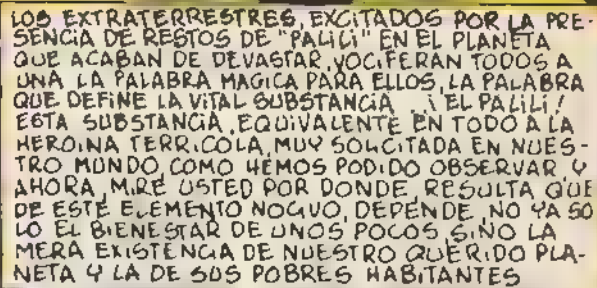 LOS EXTRATERRESTRES, EXCITADOS POR LA PRE-
SENCIA DE RESTOS DE "PALILI" EN EL PLANETA
QUE ACABAN DE DEVASTAR, VOCIFERAN TODOS A
UNA LA PALABRA MAGICA PARA ELLOS, LA PALABRA
QUE DEFINE LA VITAL SUBSTANCIA... ¡EL PALILI!
ESTA SUBSTANCIA, EQUIVALENTE EN TODO A LA
HEROINA TERRICOLA, MUY SOLICITADA EN NUES-
TRO MUNDO, COMO HEMOS PODIDO OBSERVAR Y
AHORA, MIRE USTED POR DONDE, RESULTA QUE
DE ESTE ELEMENTO NOCIVO, DEPENDE, NO YA SO
LO EL BIENESTAR DE UNOS POCOS SINO LA
MERA EXISTENCIA DE NUESTRO QUERIDO PLA-
NETA Y LA DE SUS POBRES HABITANTES